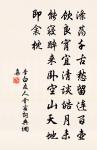 滌蕩千古愁留連百壺
飲良宵宜清談皓月未
能寢醉來臥空山天地
即衾枕
李白友人會宿